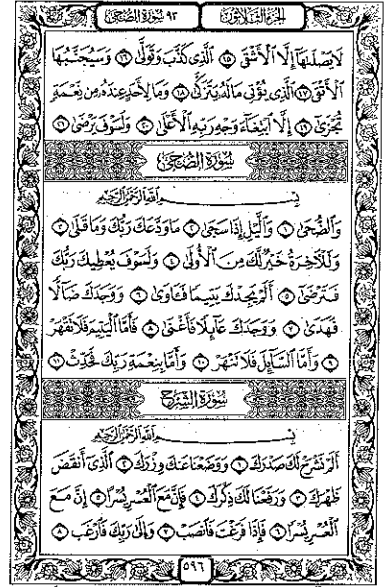 الجزء الثلاثون ٩٣ سورة الضحى
لَا يَصْلَىٰهَآ إِلَّا ٱلْأَشْقَى ١٥ ٱلَّذِى كَذَّبَ وَتَوَلَّىٰ ١٦ وَسَيُجَنَّبُهَا
ٱلْأَتْقَى ١٧ ٱلَّذِى يُؤْتِى مَالَهُۥ يَتَزَكَّىٰ ١٨ وَمَا لِأَحَدٍ عِندَهُۥ مِن نِّعْمَةٍ
تُجْزَىٰٓ ١٩ إِلَّا ٱبْتِغَآءَ وَجْهِ رَبِّهِ ٱلْأَعْلَىٰ ٢٠ وَلَسَوْفَ يَرْضَىٰ ٢١
سُورَةُ الضُّحَىٰ
بِسْمِ ٱللَّهِ ٱلرَّحْمَٰنِ ٱلرَّحِيمِ
وَٱلضُّحَىٰ ١ وَٱلَّيْلِ إِذَا سَجَىٰ ٢ مَا وَدَّعَكَ رَبُّكَ وَمَا قَلَىٰ ٣
وَلَلْءَاخِرَةُ خَيْرٌ لَّكَ مِنَ ٱلْأُولَىٰ ٤ وَلَسَوْفَ يُعْطِيكَ رَبُّكَ
فَتَرْضَىٰٓ ٥ أَلَمْ يَجِدْكَ يَتِيمًا فَـَٔاوَىٰ ٦ وَوَجَدَكَ ضَآلًّا
فَهَدَىٰ ٧ وَوَجَدَكَ عَآئِلًا فَأَغْنَىٰ ٨ فَأَمَّا ٱلْيَتِيمَ فَلَا تَقْهَرْ
٩ وَأَمَّا ٱلسَّآئِلَ فَلَا تَنْهَرْ ١٠ وَأَمَّا بِنِعْمَةِ رَبِّكَ فَحَدِّثْ ١١
سُورَةُ الشَّرْحِ
بِسْمِ ٱللَّهِ ٱلرَّحْمَٰنِ ٱلرَّحِيمِ
أَلَمْ نَشْرَحْ لَكَ صَدْرَكَ ١ وَوَضَعْنَا عَنكَ وِزْرَكَ ٢ ٱلَّذِىٓ أَنقَضَ
ظَهْرَكَ ٣ وَرَفَعْنَا لَكَ ذِكْرَكَ ٤ فَإِنَّ مَعَ ٱلْعُسْرِ يُسْرًا ٥ إِنَّ مَعَ
ٱلْعُسْرِ يُسْرًا ٦ فَإِذَا فَرَغْتَ فَٱنصَبْ ٧ وَإِلَىٰ رَبِّكَ فَٱرْغَب ٨
٥٩٦